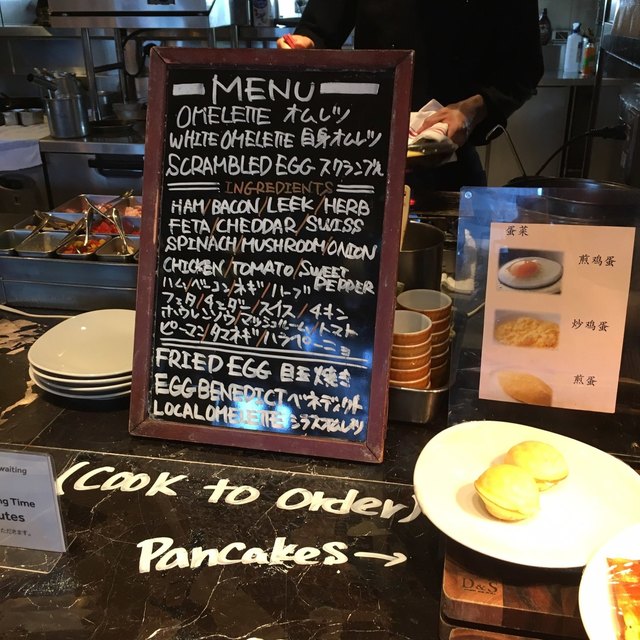 MENU
OMELETTE オムレツ
WHITE OMELETTE 白身オムレツ
SCRAMBLED EGG スクランブル
INGREDIENTS
HAM/BACON/LEEK/HERB
FETA/CHEDDAR/SWISS
SPINACH/MUSHROOM/ONION
CHICKEN/TOMATO/SWEET PEPPER
ハム/ベーコン/ネギ/ハーブ
フェタ/チェダー/スイス/チキン
ホウレンソウ/マッシュルーム/トマト
ピーマン/タマネギ/ハラペーニョ
FRIED EGG 目玉焼き
EGG BENEDICT ベネディクト
LOCAL OMELETTE シラスオムレツ
蛋菜
煎鸡蛋
炒鸡蛋
煎蛋
waiting
ng Time
utes
ただきます。
(Cook to order)
Pancakes→
D&S